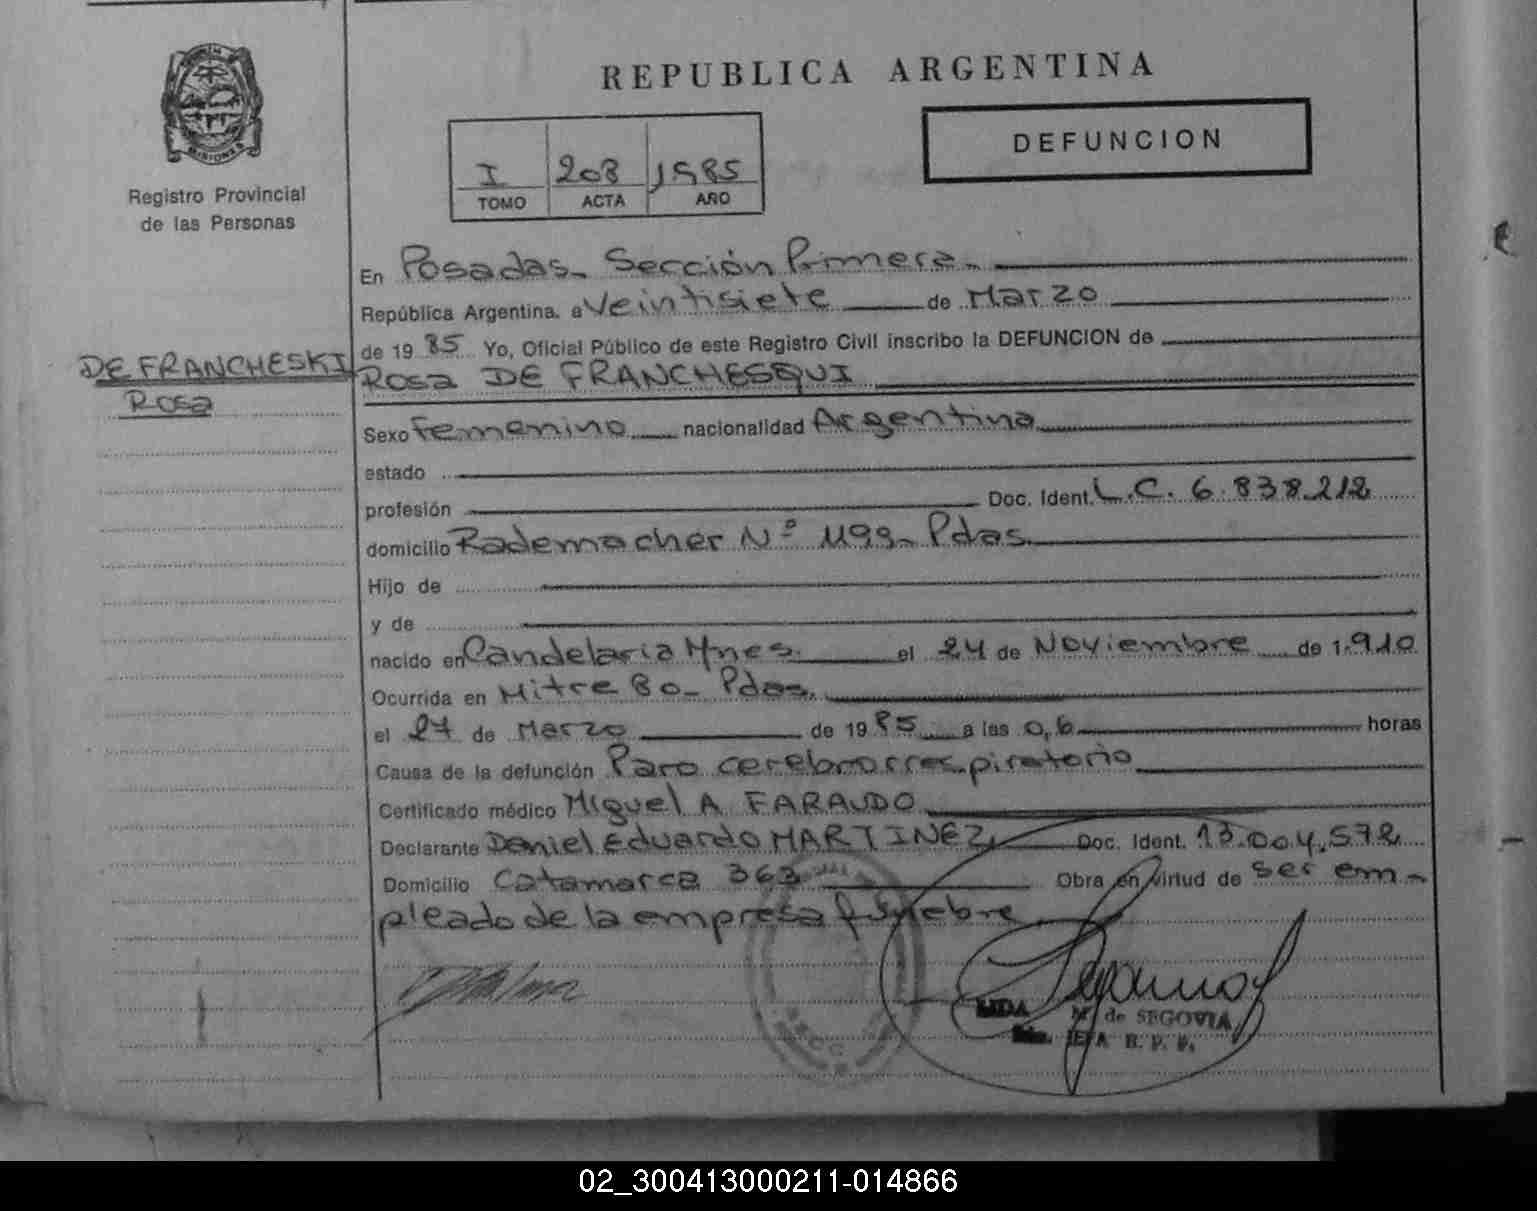 REPUBLICA ARGENTINA
DEFUNCION
I 208 1985
TOMO ACTA AÑO
MISIONES
Registro Provincial
de las Personas
En Posadas- Sección Primera-
República Argentina, a Veintisiete de Marzo
de 19 85 Yo, Oficial Público de este Registro Civil inscribo la DEFUNCION de
DE FRANCHESKI
Rosa
Rosa DE FRANCHESQUI
Sexo Femenino nacionalidad Argentina
estado
profesión Doc. Ident. L.C. 6.838.212
domicilio Rademacher Nº 1199- Pdas.
Hijo de
y de
nacido en Candelaria Mnes. el 24 de Noviembre de 1.910
Ocurrida en Mitre 80- Pdas.
el 27 de Marzo de 19 85 a las 0,6 horas
Causa de la defunción Paro cerebrorrespiratorio
Certificado médico Miguel A FARAUDO
Declarante Daniel Eduardo MARTINEZ Doc. Ident. 13.004.572
Domicilio Catamarca 363 Obra en virtud de ser em-
pleado de la empresa fúnebre
M. de SEGOVIA
JEFA R. P. P.
02_300413000211-014866